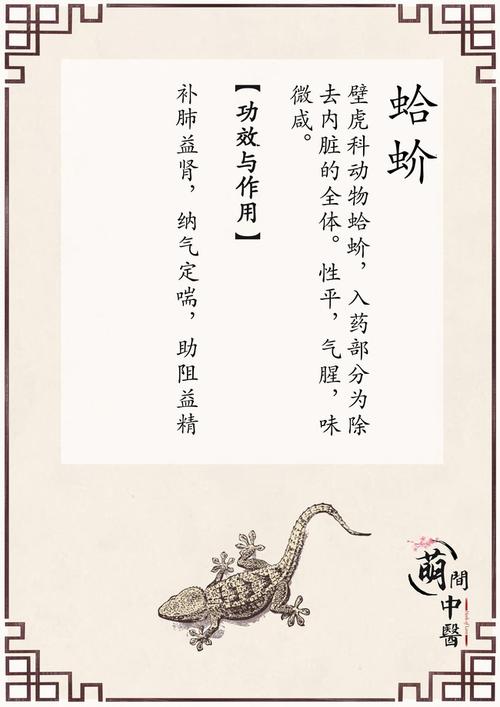 蛤蚧
壁虎科动物蛤蚧，入药部分为除
去内脏的全体。性平，气腥，味
微咸。
【功效与作用】
补肺益肾，纳气定喘，助阻益精
萌間
中醫